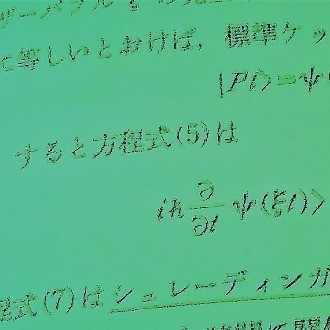 に等しいとおけば，標準ケッ
|Pt⟩=ψ(
すると方程式(5)は
iℏ ∂/∂t ψ(ξt)⟩
程式(7)はシュレーディンガ